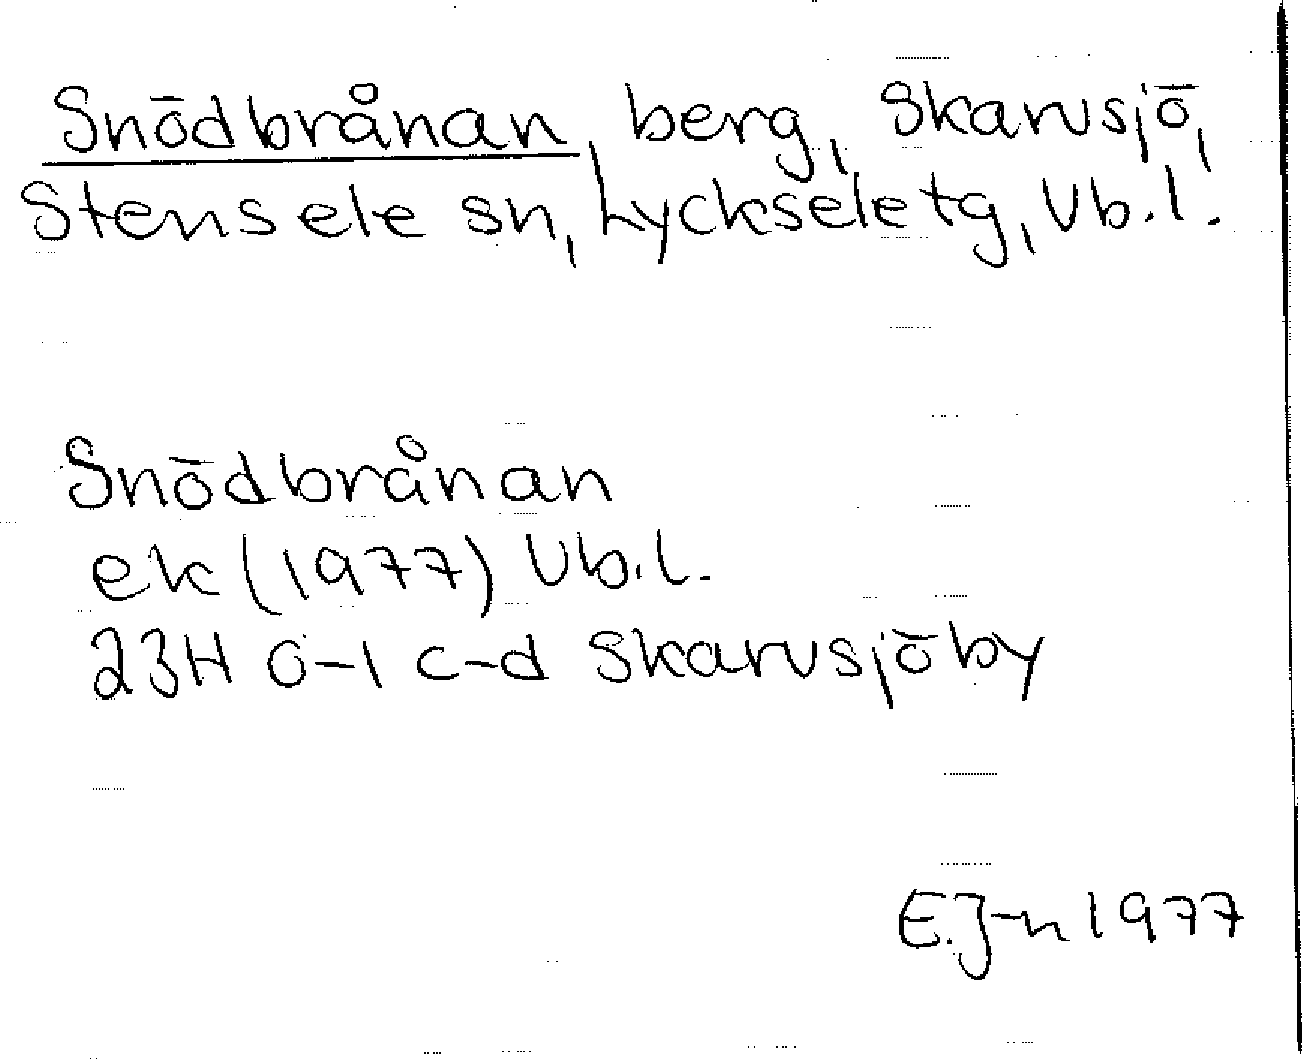 Snödbrånan, berg, Skarvsjö,
Stensele sn, Lycksele tg, Vb.l.
Snödbrånan
ek (1977) Vb.l.
23H 0-1 c-d Skarvsjöby
E.J-n 1977